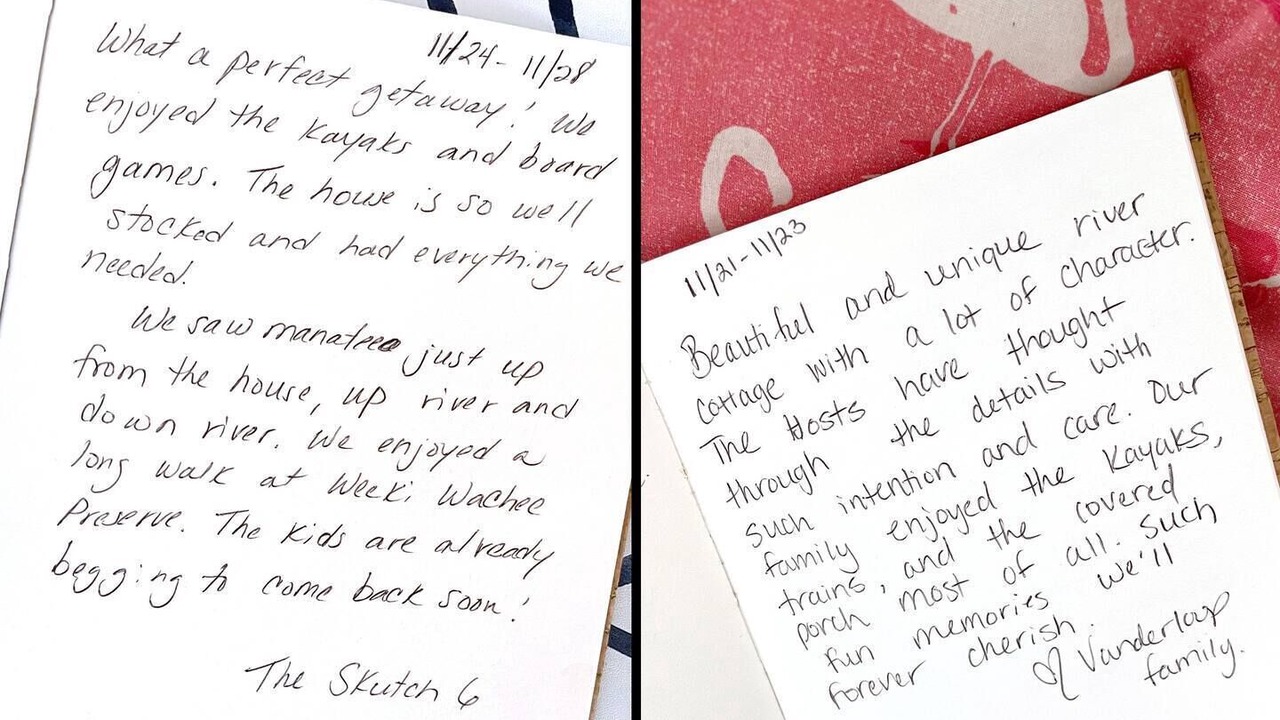 11/24 - 11/28
What a perfect getaway! We
enjoyed the Kayaks and board
games. The house is so well
stocked and had everything we
needed.
We saw manatee just up
from the house, up river and
down river. We enjoyed a
long walk at Weeki Wachee
Preserve. The kids are already
begging to come back soon!
The Skutch 6
11/21-11/23
Beautiful and unique river
cottage with a lot of character.
The Hosts have thought
through the details with
such intention and care. Our
family enjoyed the Kayaks,
trains, and the covered
porch most of all. Such
fun memories we'll
forever cherish.
Vanderloup
family.